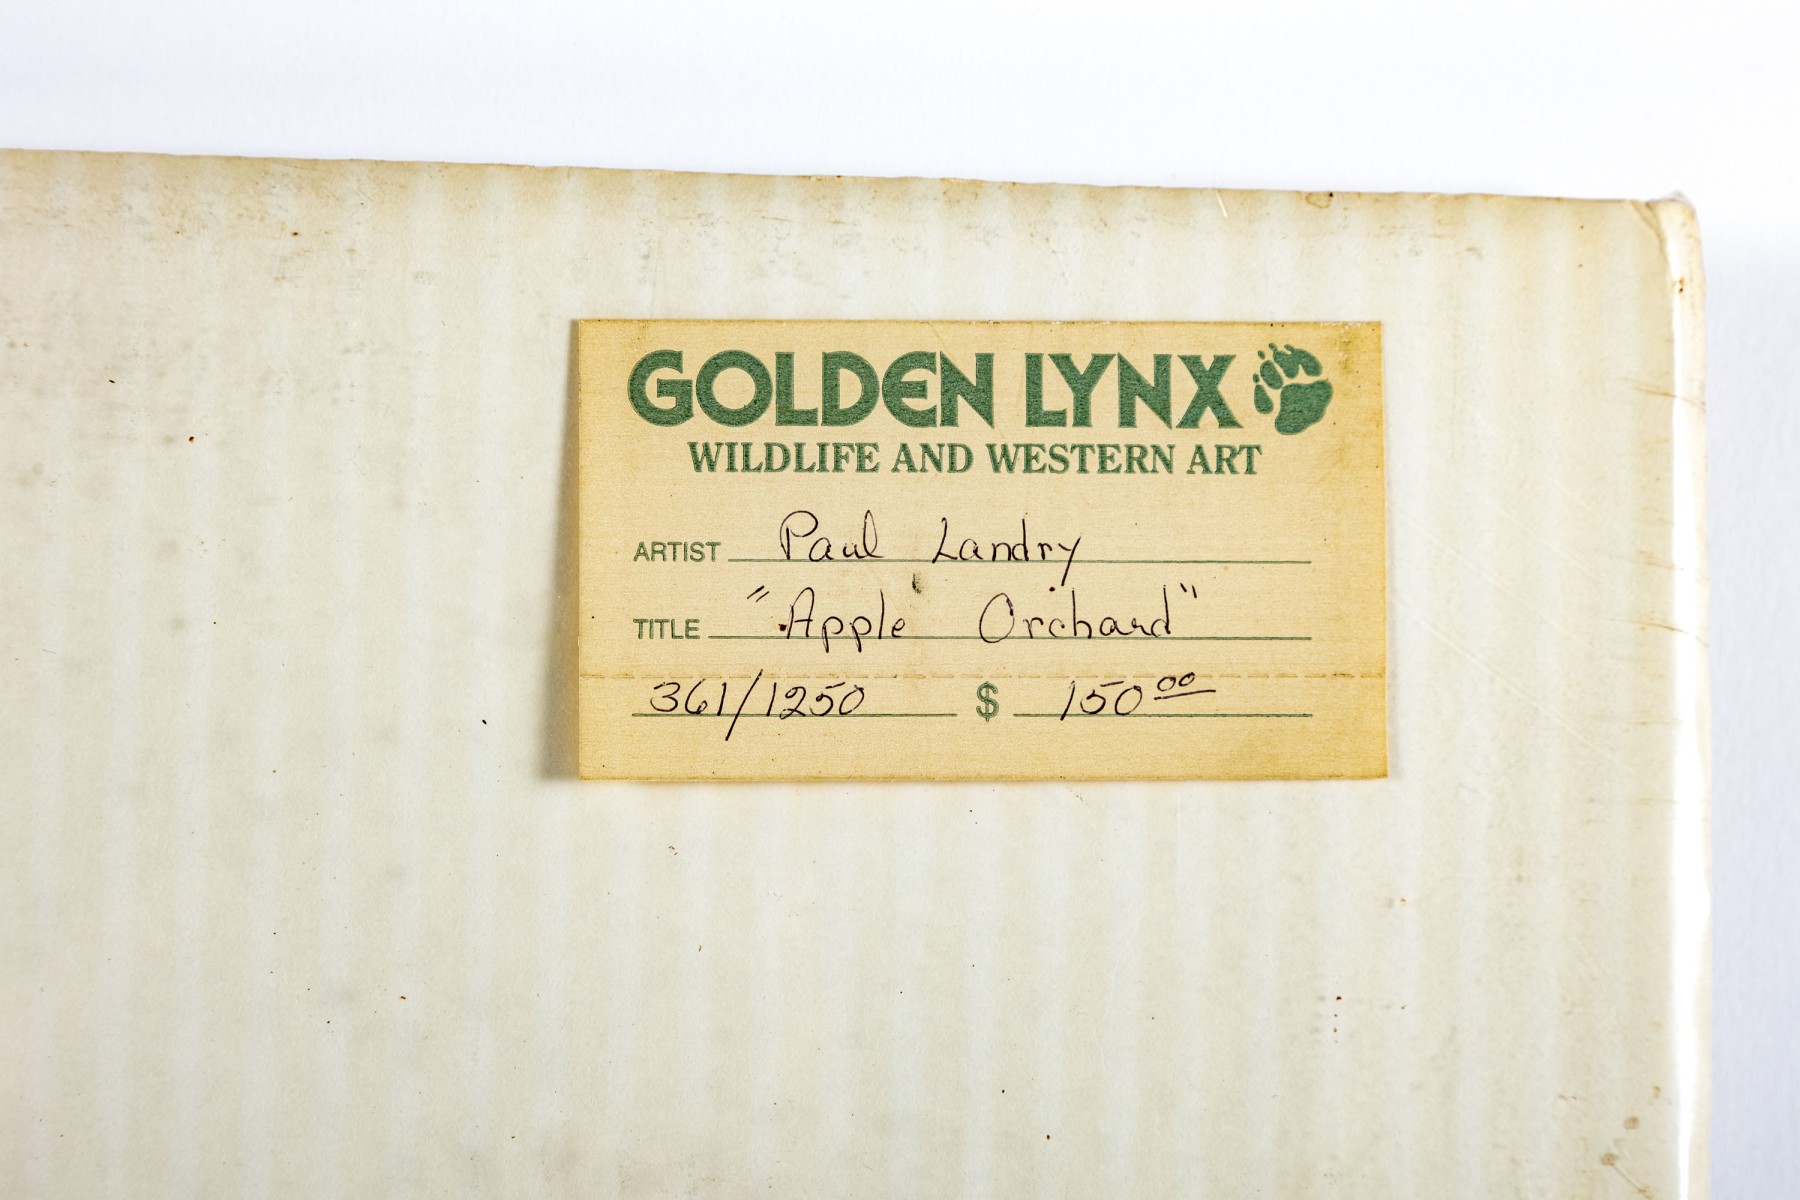 GOLDEN LYNX
WILDLIFE AND WESTERN ART
ARTIST Paul Landry
TITLE "Apple Orchard"
361/1250 $ 150.00